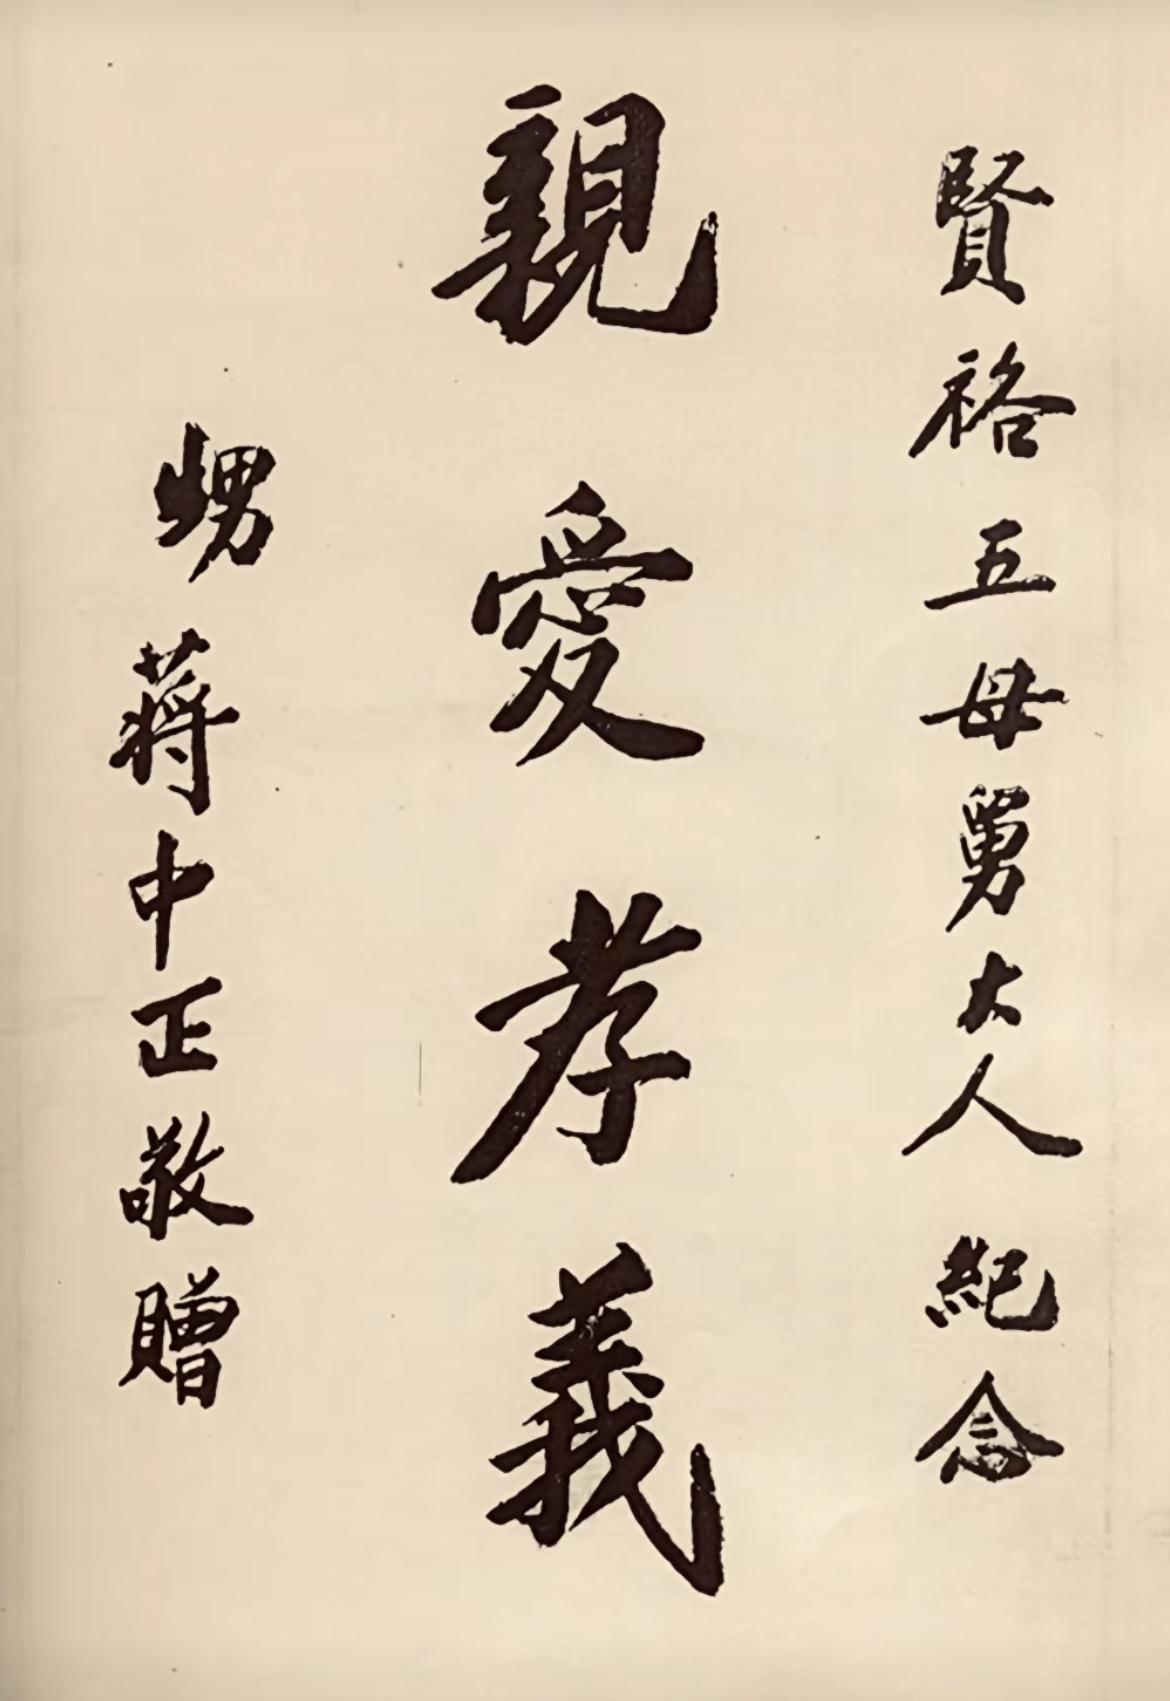 賢裕五母舅大人紀念
親愛孝義
甥蔣中正敬贈